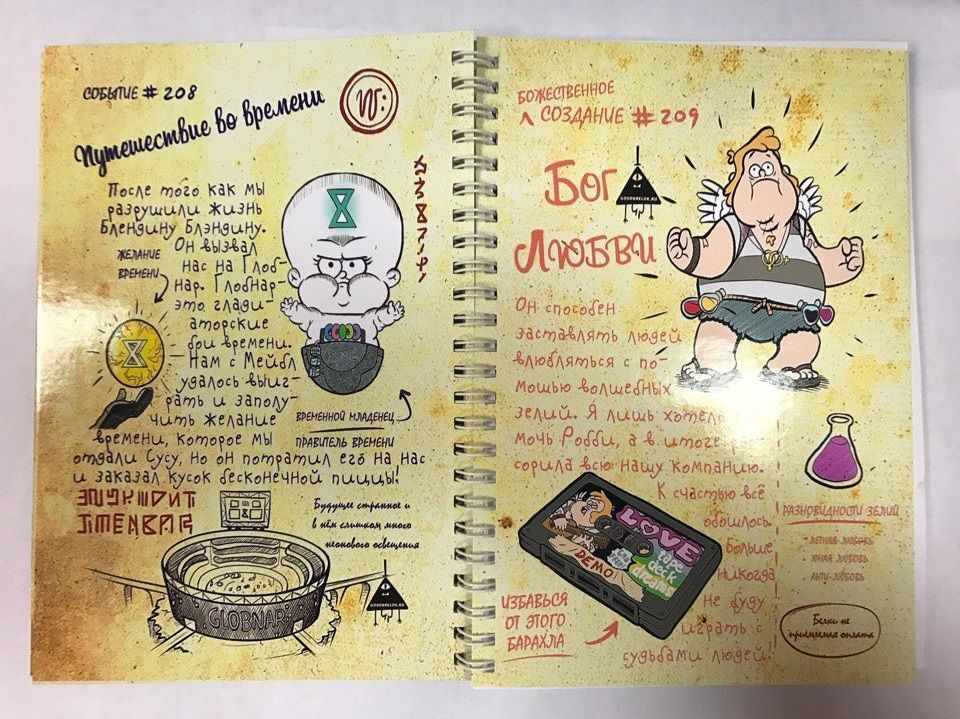 СОБЫТИЕ # 208
Путешествие во времени
После того как мы
разрушили жизнь
Блендину Блэндину.
Он вызвал
нас на Глоб-
нар. Глобнар-
это глади-
аторские
бои времени.
Нам с Мейбл
удалось выиг-
рать и заполу-
чить желание
времени, которое мы
отдали Сусу, но он потратил его на нас
и заказал кусок бесконечной пиццы!
ЖЕЛАНИЕ
ВРЕМЕНИ
ВРЕМЕННОЙ МЛАДЕНЕЦ
ПРАВИТЕЛЬ ВРЕМЕНИ
Будущее странное и
в нём слишком много
неонового освещения
GLOBNAR
GOODBRELOK.RU
БОЖЕСТВЕННОЕ
СОЗДАНИЕ # 209
Бог
Любви
GOODBRELOK.RU
Он способен
заставлять людей
влюбляться с по-
мощью волшебных
зелий. Я лишь хотела
мочь Робби, а в итоге
сорила всю нашу компанию.
К счастью всё
обошлось
Больше
никогда
не буду
играть с
судьбами людей!
LOVE
tape
deck
dreams
DEMO
ИЗБАВЬСЯ
ОТ ЭТОГО
БАРАХЛА
РАЗНОВИДНОСТИ ЗЕЛИЙ
- ЛЕТНЯЯ ЛЮБОВЬ
- ЮНАЯ ЛЮБОВЬ
- АНТИ-ЛЮБОВЬ
Белки не
приемлемая оплата